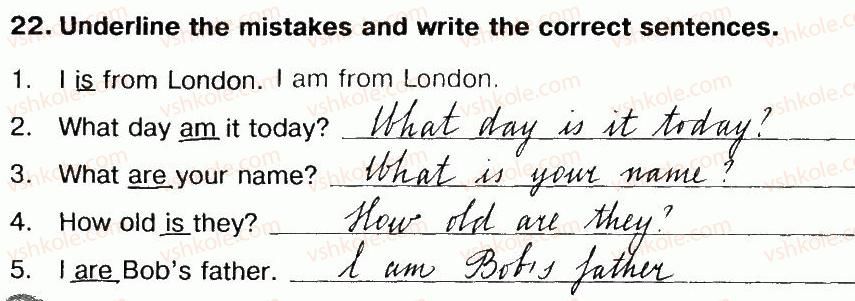 22. Underline the mistakes and write the correct sentences.
1. I is from London. I am from London.
2. What day am it today? What day is it today?
3. What are your name? What is your name?
4. How old is they? How old are they?
5. I are Bob's father. I am Bob's father